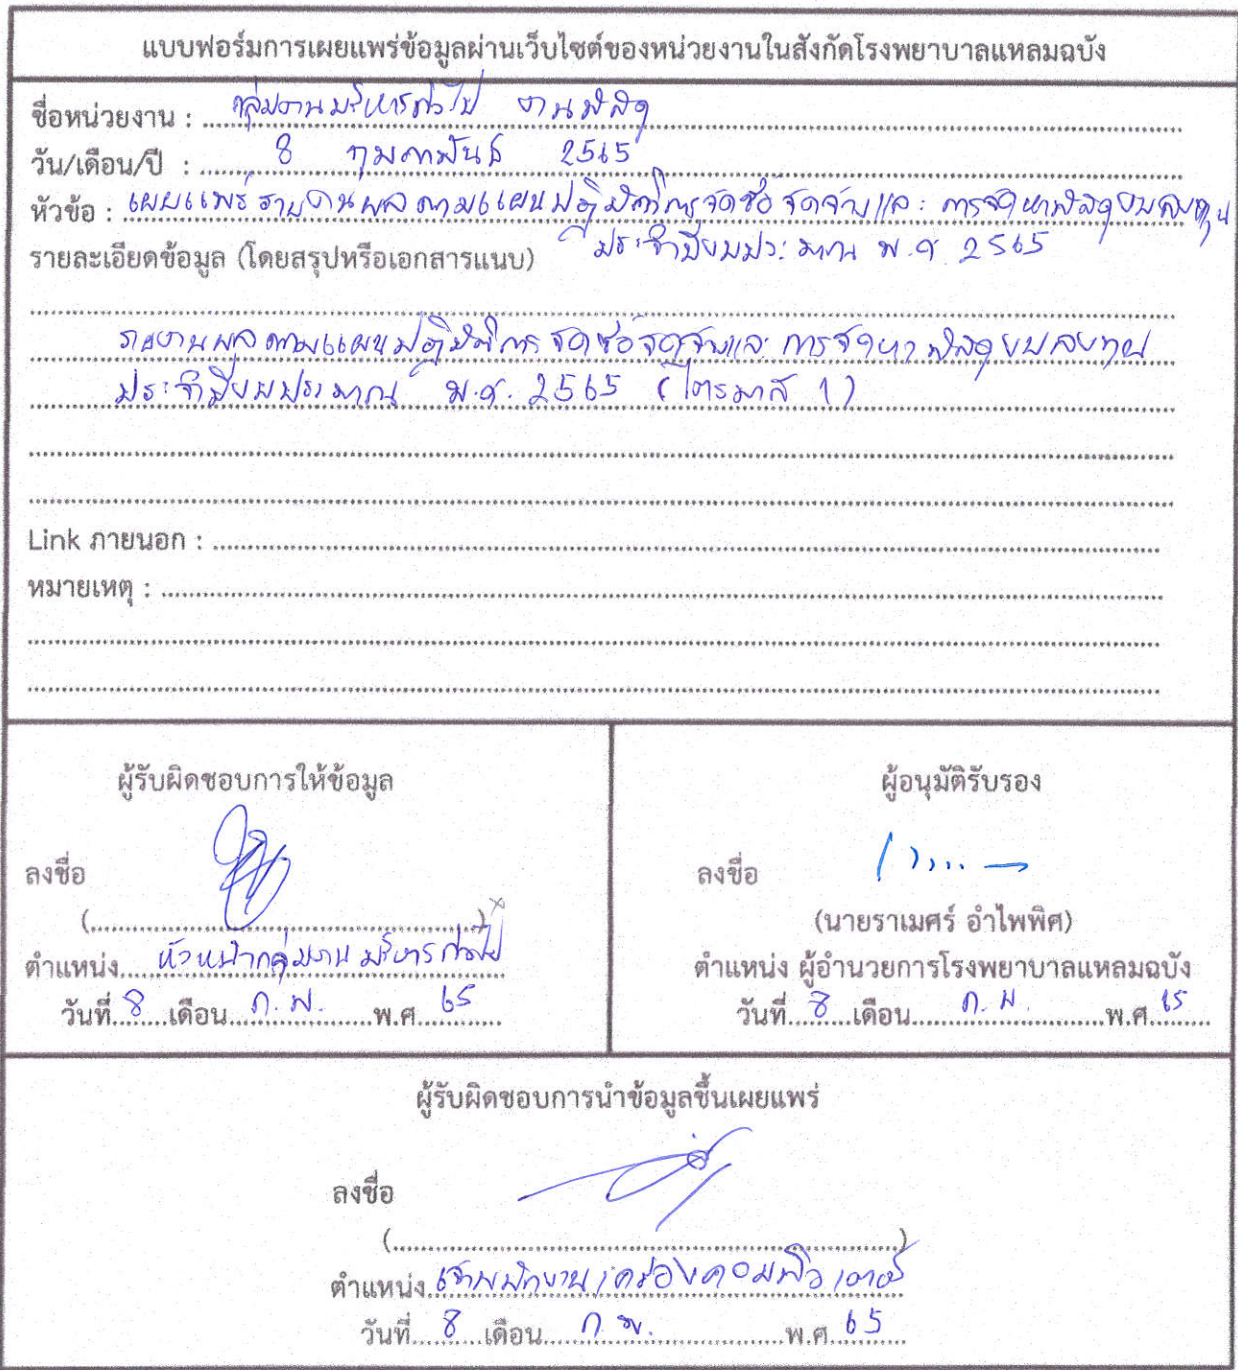 แบบฟอร์มการเผยแพร่ข้อมูลผ่านเว็บไซต์ของหน่วยงานในสังกัดโรงพยาบาลแหลมฉบัง
ชื่อหน่วยงาน : กลุ่มงานบริหารทั่วไป งานพัสดุ
วัน/เดือน/ปี : 8 กุมภาพันธ์ 2565
หัวข้อ : เผยแพร่รายงานผลตามแผนปฏิบัติการจัดซื้อจัดจ้างและการจัดหาพัสดุงบลงทุน
ประจำปีงบประมาณ พ.ศ. 2565
รายละเอียดข้อมูล (โดยสรุปหรือเอกสารแนบ)
รายงานผลตามแผนปฏิบัติการจัดซื้อจัดจ้างและการจัดหาพัสดุงบลงทุน
ประจำปีงบประมาณ พ.ศ. 2565 (ไตรมาส 1)
Link ภายนอก :
หมายเหตุ :
ผู้รับผิดชอบการให้ข้อมูล
ลงชื่อ
(....................)
ตำแหน่ง หัวหน้ากลุ่มงานบริหารทั่วไป
วันที่ 8 เดือน ก.พ. พ.ศ. 65
ผู้อนุมัติรับรอง
ลงชื่อ
(นายราเมศร์ อำไพพิศ)
ตำแหน่ง ผู้อำนวยการโรงพยาบาลแหลมฉบัง
วันที่ 8 เดือน ก.พ. พ.ศ. 65
ผู้รับผิดชอบการนำข้อมูลขึ้นเผยแพร่
ลงชื่อ
(....................)
ตำแหน่ง เจ้าพนักงานเครื่องคอมพิวเตอร์
วันที่ 8 เดือน ก.พ. พ.ศ. 65